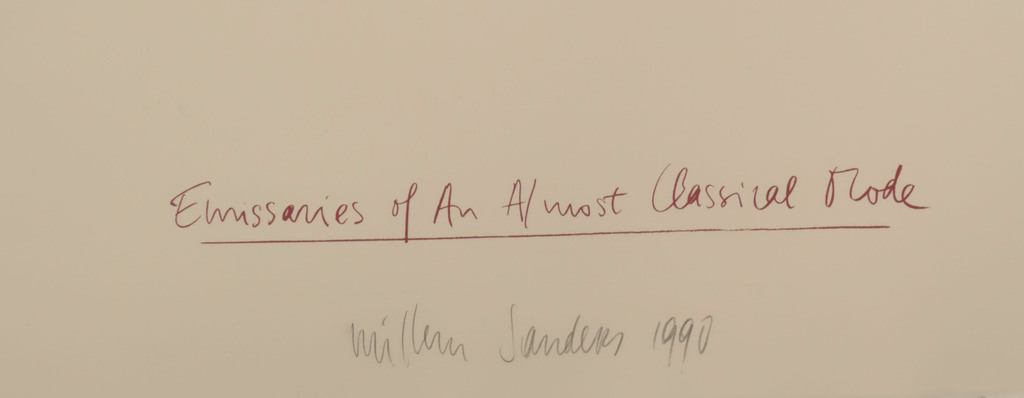 Emissaries of An Almost Classical Mode
Willem Sanders 1990